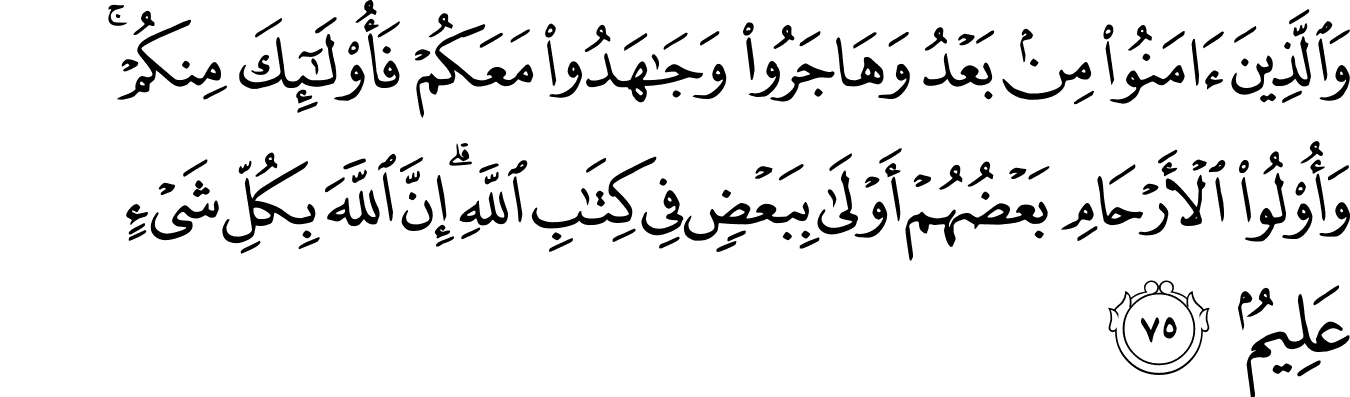 وَٱلَّذِينَ ءَامَنُوا۟ مِنۢ بَعْدُ وَهَاجَرُوا۟ وَجَـٰهَدُوا۟ مَعَكُمْ فَأُو۟لَـٰٓئِكَ مِنكُمْ ۚ
وَأُو۟لُوا۟ ٱلْأَرْحَامِ بَعْضُهُمْ أَوْلَىٰ بِبَعْضٍ فِى كِتَـٰبِ ٱللَّهِ ۗ إِنَّ ٱللَّهَ بِكُلِّ شَىْءٍ
عَلِيمٌۢ ٧٥